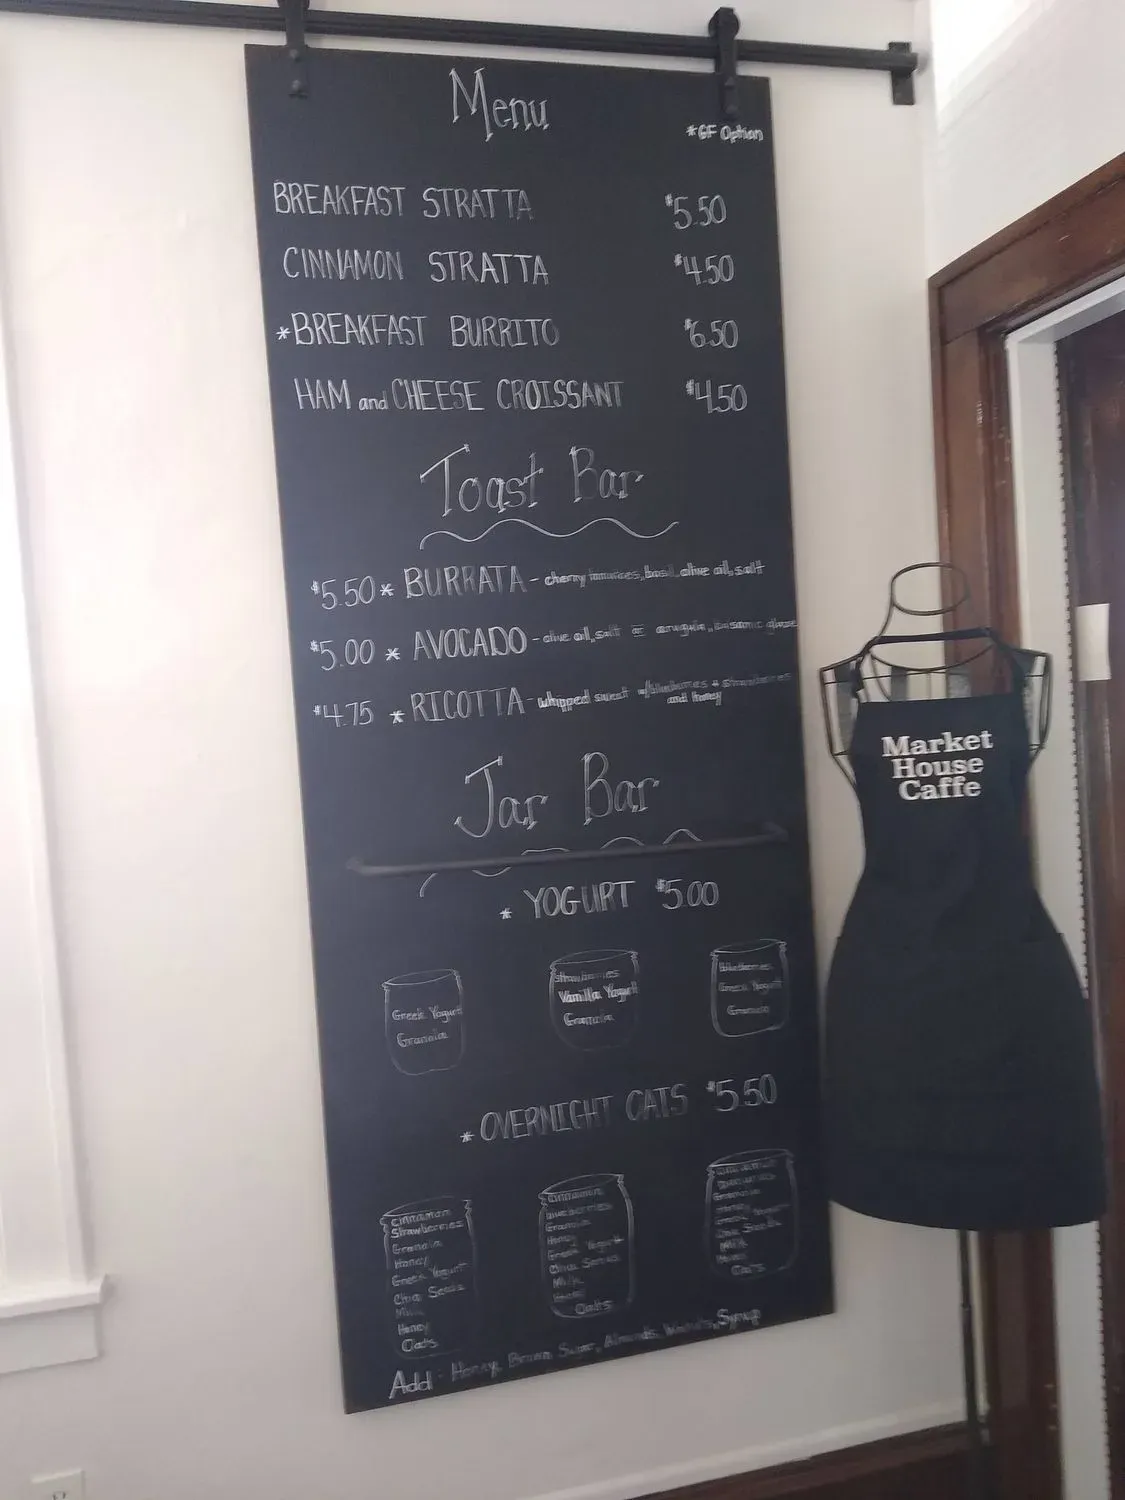 Menu
*GF Option
BREAKFAST STRATTA $5.50
CINNAMON STRATTA $4.50
*BREAKFAST BURRITO $6.50
HAM and CHEESE CROISSANT $4.50
Toast Bar
$5.50 * BURRATA - cherry tomatoes, basil, olive oil, salt
$5.00 * AVOCADO - olive oil, salt or arugula, balsamic glaze
$4.75 * RICOTTA - whipped sweet w/blueberries + strawberries
and honey
Jar Bar
* YOGURT $5.00
Greek Yogurt
Granola
Strawberries
Vanilla Yogurt
Granola
Blueberries
Greek Yogurt
Granola
* OVERNIGHT OATS $5.50
Cinnamon
Strawberries
Granola
Honey
Greek Yogurt
Chia Seeds
Milk
Honey
Oats
Cinnamon
Blueberries
Granola
Honey
Greek Yogurt
Chia Seeds
Milk
Honey
Oats
Granola
Honey
Greek Yogurt
Chia Seeds
Milk
Honey
Oats
Add - Honey, Brown Sugar, Almonds, Walnuts, Syrup
Market
House
Caffe